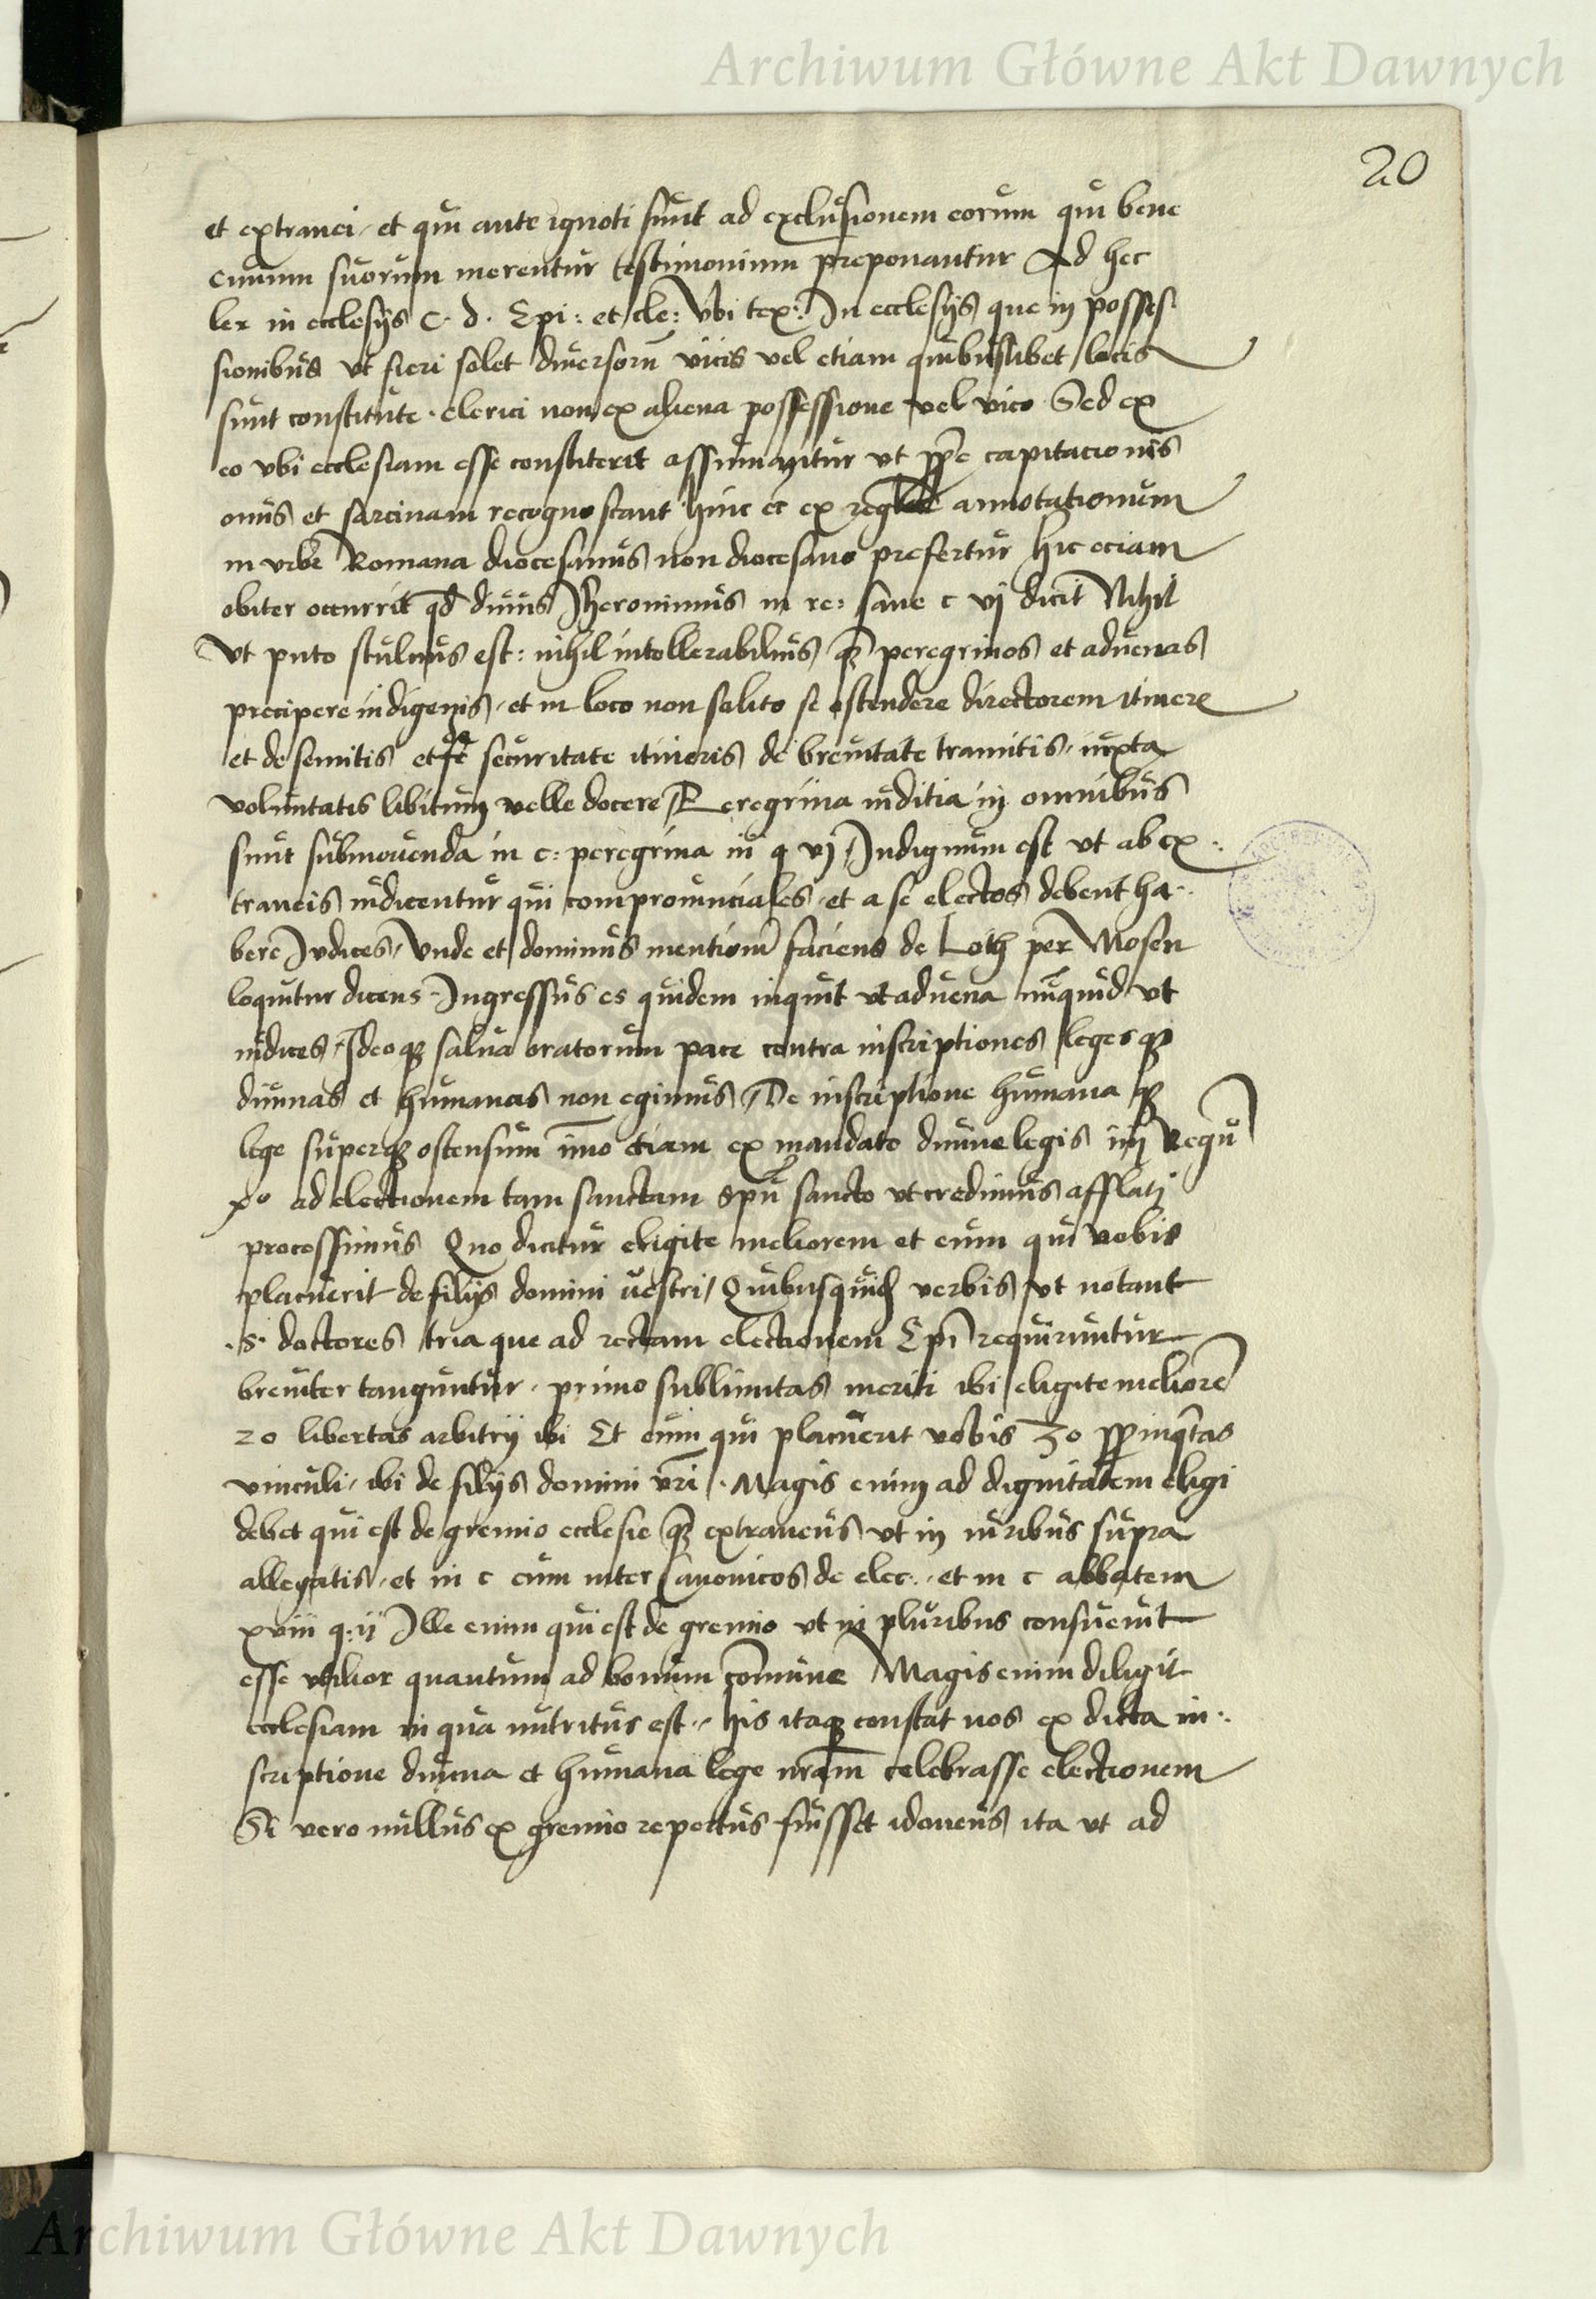 Archiwum Główne Akt Dawnych
20
et extranei, et qui ante ignoti sunt ad exclusionem eorum qui bene
civium suorum merentur testimonium preponantur Ad hec
lex in ecclesijs C. d. Epi: et cle: Vbi tex: In ecclesijs que in posses
sionibus vt fieri solet diversorũ vicis vel etiam quibuslibet locis
sunt constitute. clerici non ex aliena possessione vel vico Sed ex
eo vbi ecclesiam esse constiterit assumantur vt ꝓpẽ capitacionis
onus et sarcinam recognoscant hinc et ex annotationum
in vrbe Romana diocesanus non diocesano prefertur hic eciam
obiter occurrit qđ divus Hieronimus in re: sane c vj dicit Nihil
Vt puto stulcius est: nihil intollerabilius q̃ peregrinos et advenas
precipere indigenis, et in loco non solito se ostendere directorem itinere
et de semitis et de securitate itineris de brevitate tramitis, iuxta
voluntatis libitum velle docere, Peregrina iuditia in omnibus
sunt submouenda in c: peregrina iij q vj, Indignum est vt ab ex.
traneis iudicentur qui comprouinciales et a se electos debent ha.
bere Iudices, Vnde et dominus mentionẽ faciens de Loth per Mosen
loquitur dicens. Ingressus es quidem inquit vt advena nũquid vt
iudices, Ideoqꝫ salua oratorum pace contra inscriptiones legesqꝫ
diuinas et humanas non egimus, De inscriptione humana qꝫ
lege superqꝫ ostensum imo etiam ex mandato diuine legis iiij Regũ
xº ad electionem tam sanctam spũ sancto vt credimus afflatj
processimus Quo dicitur eligite meliorem et eum qui vobis
placuerit de filijs domini vestri, Quibusquidẽ verbis vt notant
.s. doctores tria que ad rectam electionem Epĩ requiruntur
breuiter tanguntur. primo sublimitas meriti ibi eligite meliorẽ
2o libertas arbitrij ibi Et eum qui placuerit vobis 3o ꝓpinq̃tas
vinculi, ibi de filijs domini vr̃i. Magis enim ad dignitatem eligi
debet qui est de gremio ecclesie q̃ extraneus vt in iuribus supra
allegatis, et in c cum inter Canonicos de elec., et in c abbatem
xviii q: ij Ille enim qui est de gremio vt in pluribus consueuit
esse vtilior quantum ad bonum com̃une Magis enim diligit
ecclesiam in qua nutritus est,, his itaqꝫ constat nos ex dicta in.
scriptione diuina et humana lege nr̃am celebrasse electionem
Si vero nullus ex gremio repertus fuisset idoneus ita vt ad
Archiwum Główne Akt Dawnych